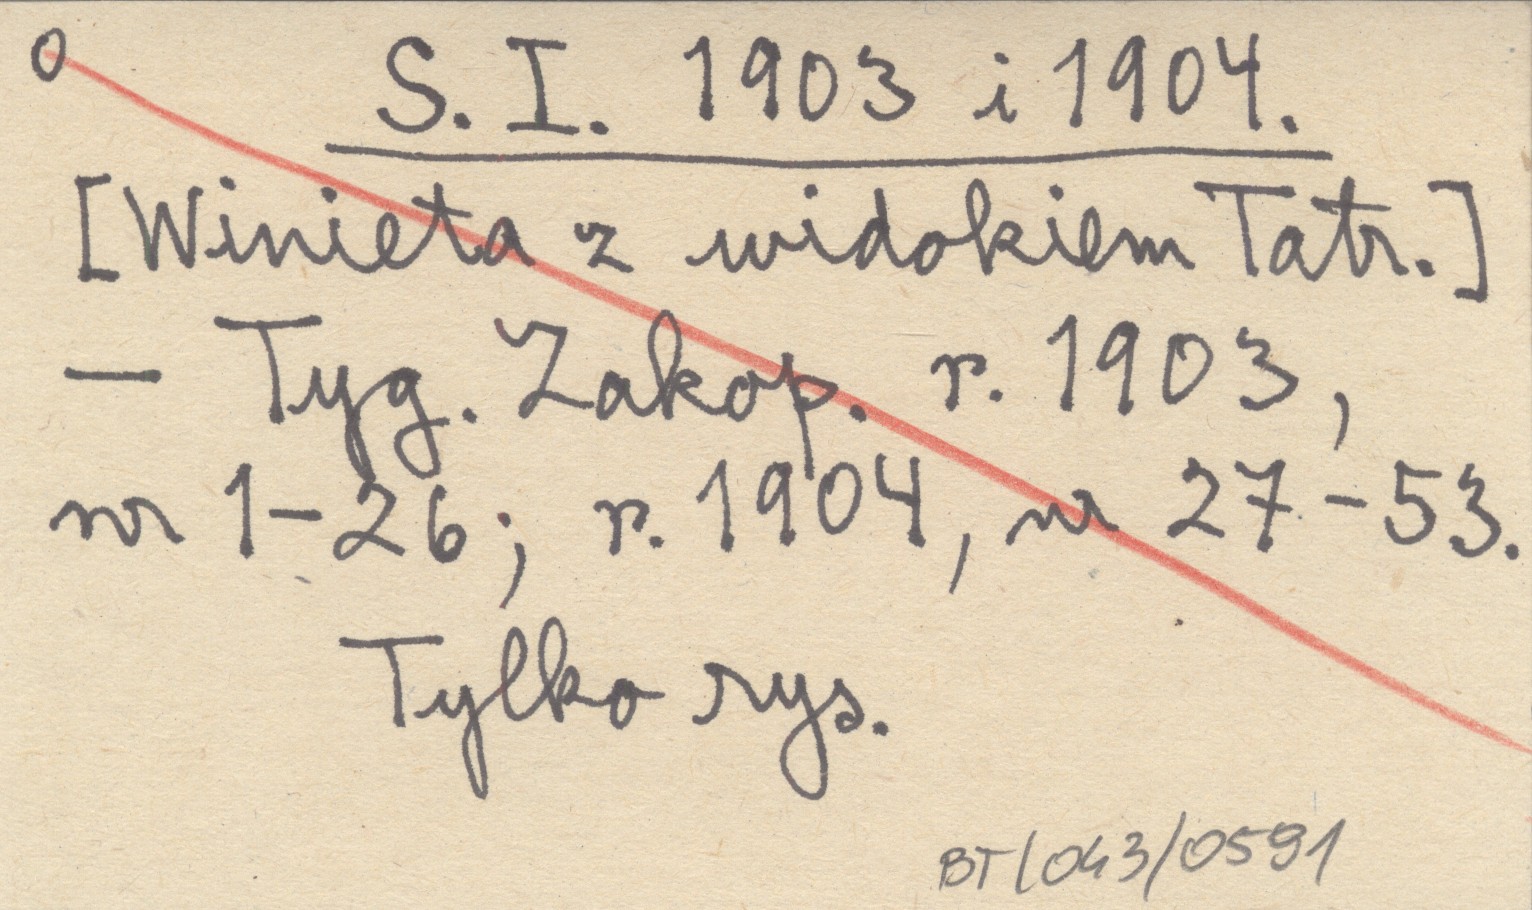 0 S. I. 1903 i 1904.
[Winieta z widokiem Tatr.]
— Tyg. Zakop. r. 1903,
nr 1-26; r. 1904, nr 27-53.
Tylko rys.
BT/043/0591